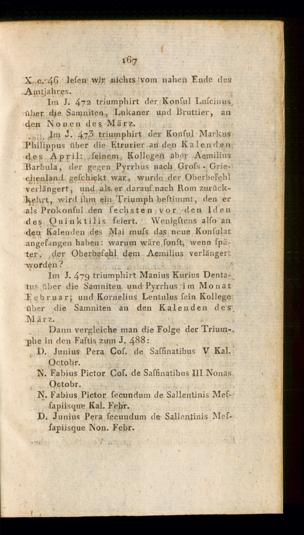 167
X. c. 46 lesen wir nichts vom nahen Ende des
Amtjahres.
Im J. 472 triumphirt der Konsul Luscinus
über die Samniten, Lukaner und Bruttier, an
den Nonen des März.
Im J. 473 triumphirt der Konsul Markus
Philippus über die Etrurier an den Kalenden
des April: seinem Kollegen aber Aemilius
Barbula, der gegen Pyrrhus nach Gross-Grie-
chenland geschickt war, wurde der Oberbefehl
verlängert, und als er darauf nach Rom zurück-
kehrt, wird ihm ein Triumph bestimmt, den er
als Prokonsul den sechsten vor den Iden
des Quinktilis feiert. Wenigstens also an
den Kalenden des Mai muss das neue Konsulat
angefangen haben: warum wäre sonst, wenn spä-
ter, der Oberbefehl dem Aemilius verlängert
worden?
Im J. 479 triumphirt Manius Kurius Denta-
tus über die Samniten und Pyrrhus im Monat
Februar; und Kornelius Lentulus sein Kollege
über die Samniten an den Kalenden des
März.
Dann vergleiche man die Folge der Trium-
phe in den Fastis zum J. 488:
D. Junius Pera Cos. de Sassinatibus V Kal.
Octobr.
N. Fabius Pictor Cos. de Sassinatibus III Nonas
Octobr.
N. Fabius Pictor secundum de Sallentinis Mes-
sapiisque Kal. Febr.
D. Junius Pera secundum de Sallentinis Mes-
sapiisque Non. Febr.